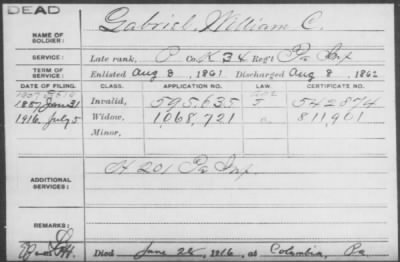 DEAD
NAME OF SOLDIER: Gabriel, William C.
SERVICE: Late rank, P Co. K 34 Reg't Pa Inf
TERM OF SERVICE: Enlisted Aug 8, 1861 Discharged Aug 8, 1862
DATE OF FILING. CLASS. APPLICATION NO. LAW. CERTIFICATE NO.
1887 Jan 31 Invalid, 595.635 542874
1916, July 5 Widow, 1,068,721 811,901
Minor,
ADDITIONAL SERVICES: H 201 Pa Inf.
REMARKS:
Died June 28, 1916, at Columbia, Pa.